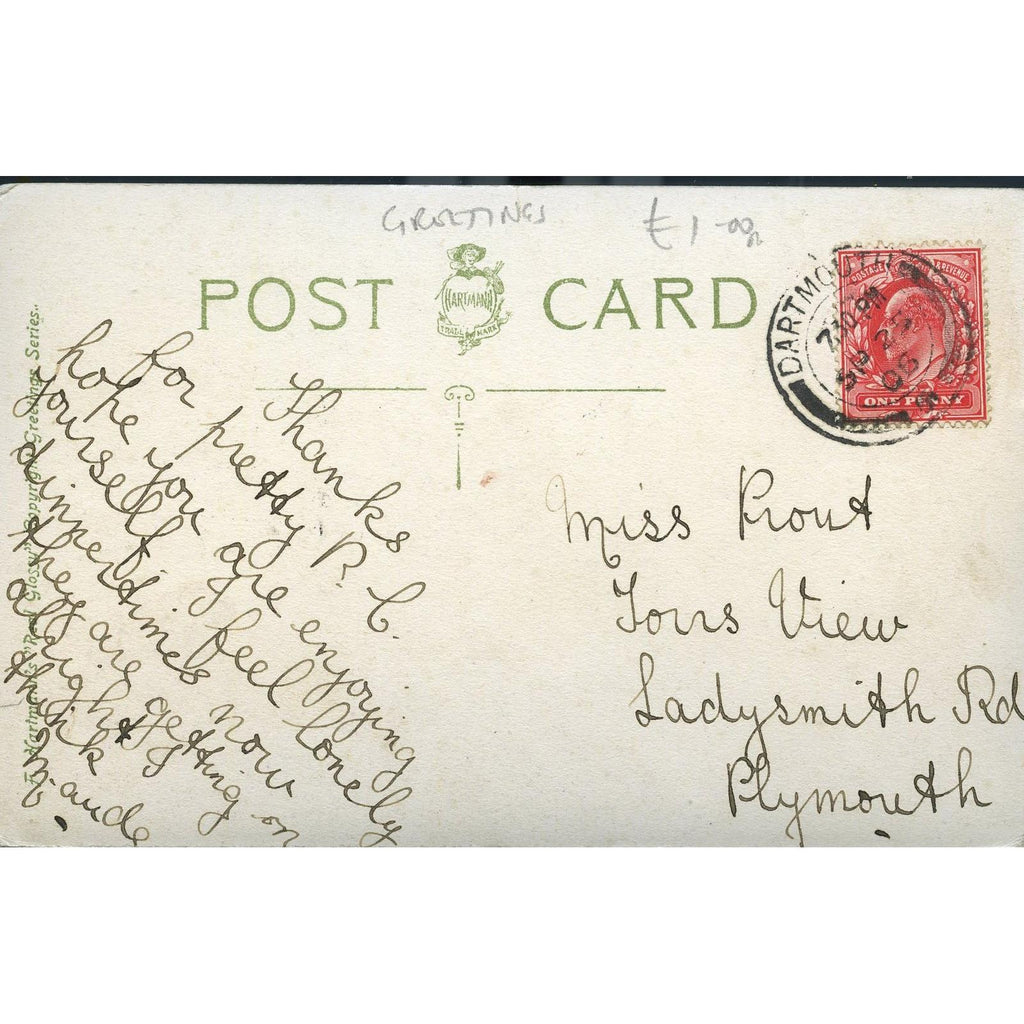 GREETINGS £1-00
POST CARD
HARTMANN
TRADE MARK
DARTMOUTH
7.30 PM
06
POSTAGE & REVENUE
ONE PENNY
Hartmann's "Real Glossy" Copyright Greetings Series.
Thanks
for pretty P. C.
hope you are enjoying
yourself, feel lonely
dinnertimes now
they are getting on
alright I
think
Maude
Miss Prout
Tors View
Ladysmith Rd
Plymouth